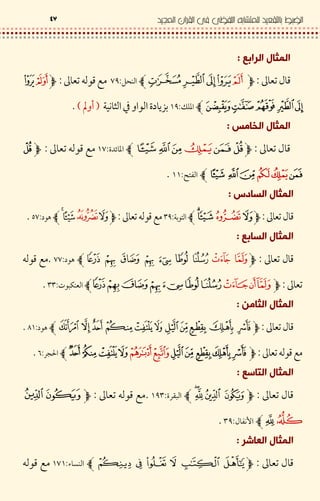 الضبط بالتقعيد للمتشابه اللفظي في القرآن المجيد ٤٧
المثال الرابع :
قال تعالى : ﴿ أَلَمْ يَرَوْا۟ إِلَى ٱلطَّيْرِ مُسَخَّرَٰتٍ ﴾ النحل:٧٩ مع قوله تعالى : ﴿ أَوَلَمْ يَرَوْا۟
إِلَى ٱلطَّيْرِ فَوْقَهُمْ صَٰٓفَّٰتٍ وَيَقْبِضْنَ ﴾ الملك:١٩ بزيادة الواو في الثانية ( أولم ) .
المثال الخامس :
قال تعالى : ﴿ قُلْ فَمَن يَمْلِكُ مِنَ ٱللَّهِ شَيْـًٔا ﴾ المائدة:١٧ مع قوله تعالى : ﴿ قُلْ
فَمَن يَمْلِكُ لَكُم مِّنَ ٱللَّهِ شَيْـًٔا ﴾ الفتح:١١ .
المثال السادس :
قال تعالى : ﴿ وَلَا تَضُرُّوهُ شَيْـًٔا ﴾ التوبة:٣٩ مع قوله تعالى : ﴿ وَلَا تَضُرُّونَهُۥ شَيْـًٔا ﴾ هود:٥٧ .
المثال السابع :
قال تعالى : ﴿ وَلَمَّا جَآءَتْ رُسُلُنَا لُوطًا سِىٓءَ بِهِمْ وَضَاقَ بِهِمْ ذَرْعًا ﴾ هود:٧٧ .مع قوله
تعالى : ﴿ وَلَمَّآ أَن جَآءَتْ رُسُلُنَا لُوطًا سِىٓءَ بِهِمْ وَضَاقَ بِهِمْ ذَرْعًا ﴾ العنكبوت:٣٣ .
المثال الثامن :
قال تعالى : ﴿ فَأَسْرِ بِأَهْلِكَ بِقِطْعٍ مِّنَ ٱلَّيْلِ وَلَا يَلْتَفِتْ مِنكُمْ أَحَدٌ إِلَّا ٱمْرَأَتَكَ ﴾ هود:٨١ .
مع قوله تعالى : ﴿ فَأَسْرِ بِأَهْلِكَ بِقِطْعٍ مِّنَ ٱلَّيْلِ وَٱتَّبِعْ أَدْبَٰرَهُمْ وَلَا يَلْتَفِتْ مِنكُمْ أَحَدٌ ﴾ الحجر:٦ .
المثال التاسع :
قال تعالى : ﴿ وَيَكُونَ ٱلدِّينُ لِلَّهِ ﴾ البقرة:١٩٣ .مع قوله تعالى : ﴿ وَيَكُونَ ٱلدِّينُ
كُلُّهُۥ لِلَّهِ ﴾ الأنفال:٣٩ .
المثال العاشر :
قال تعالى : ﴿ يَٰٓأَهْلَ ٱلْكِتَٰبِ لَا تَغْلُوا۟ فِى دِينِكُمْ ﴾ النساء:١٧١ مع قوله